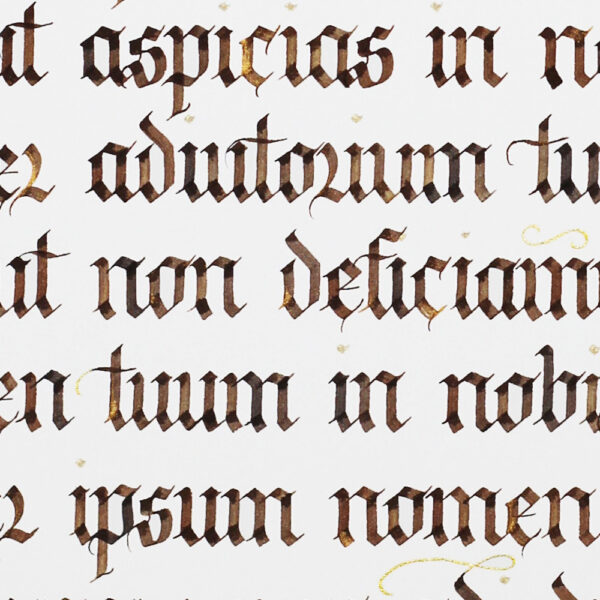 ut aspicias in n
er adiutorium tu
ut non deficiam
en tuum in nobi
er ipsum nomen